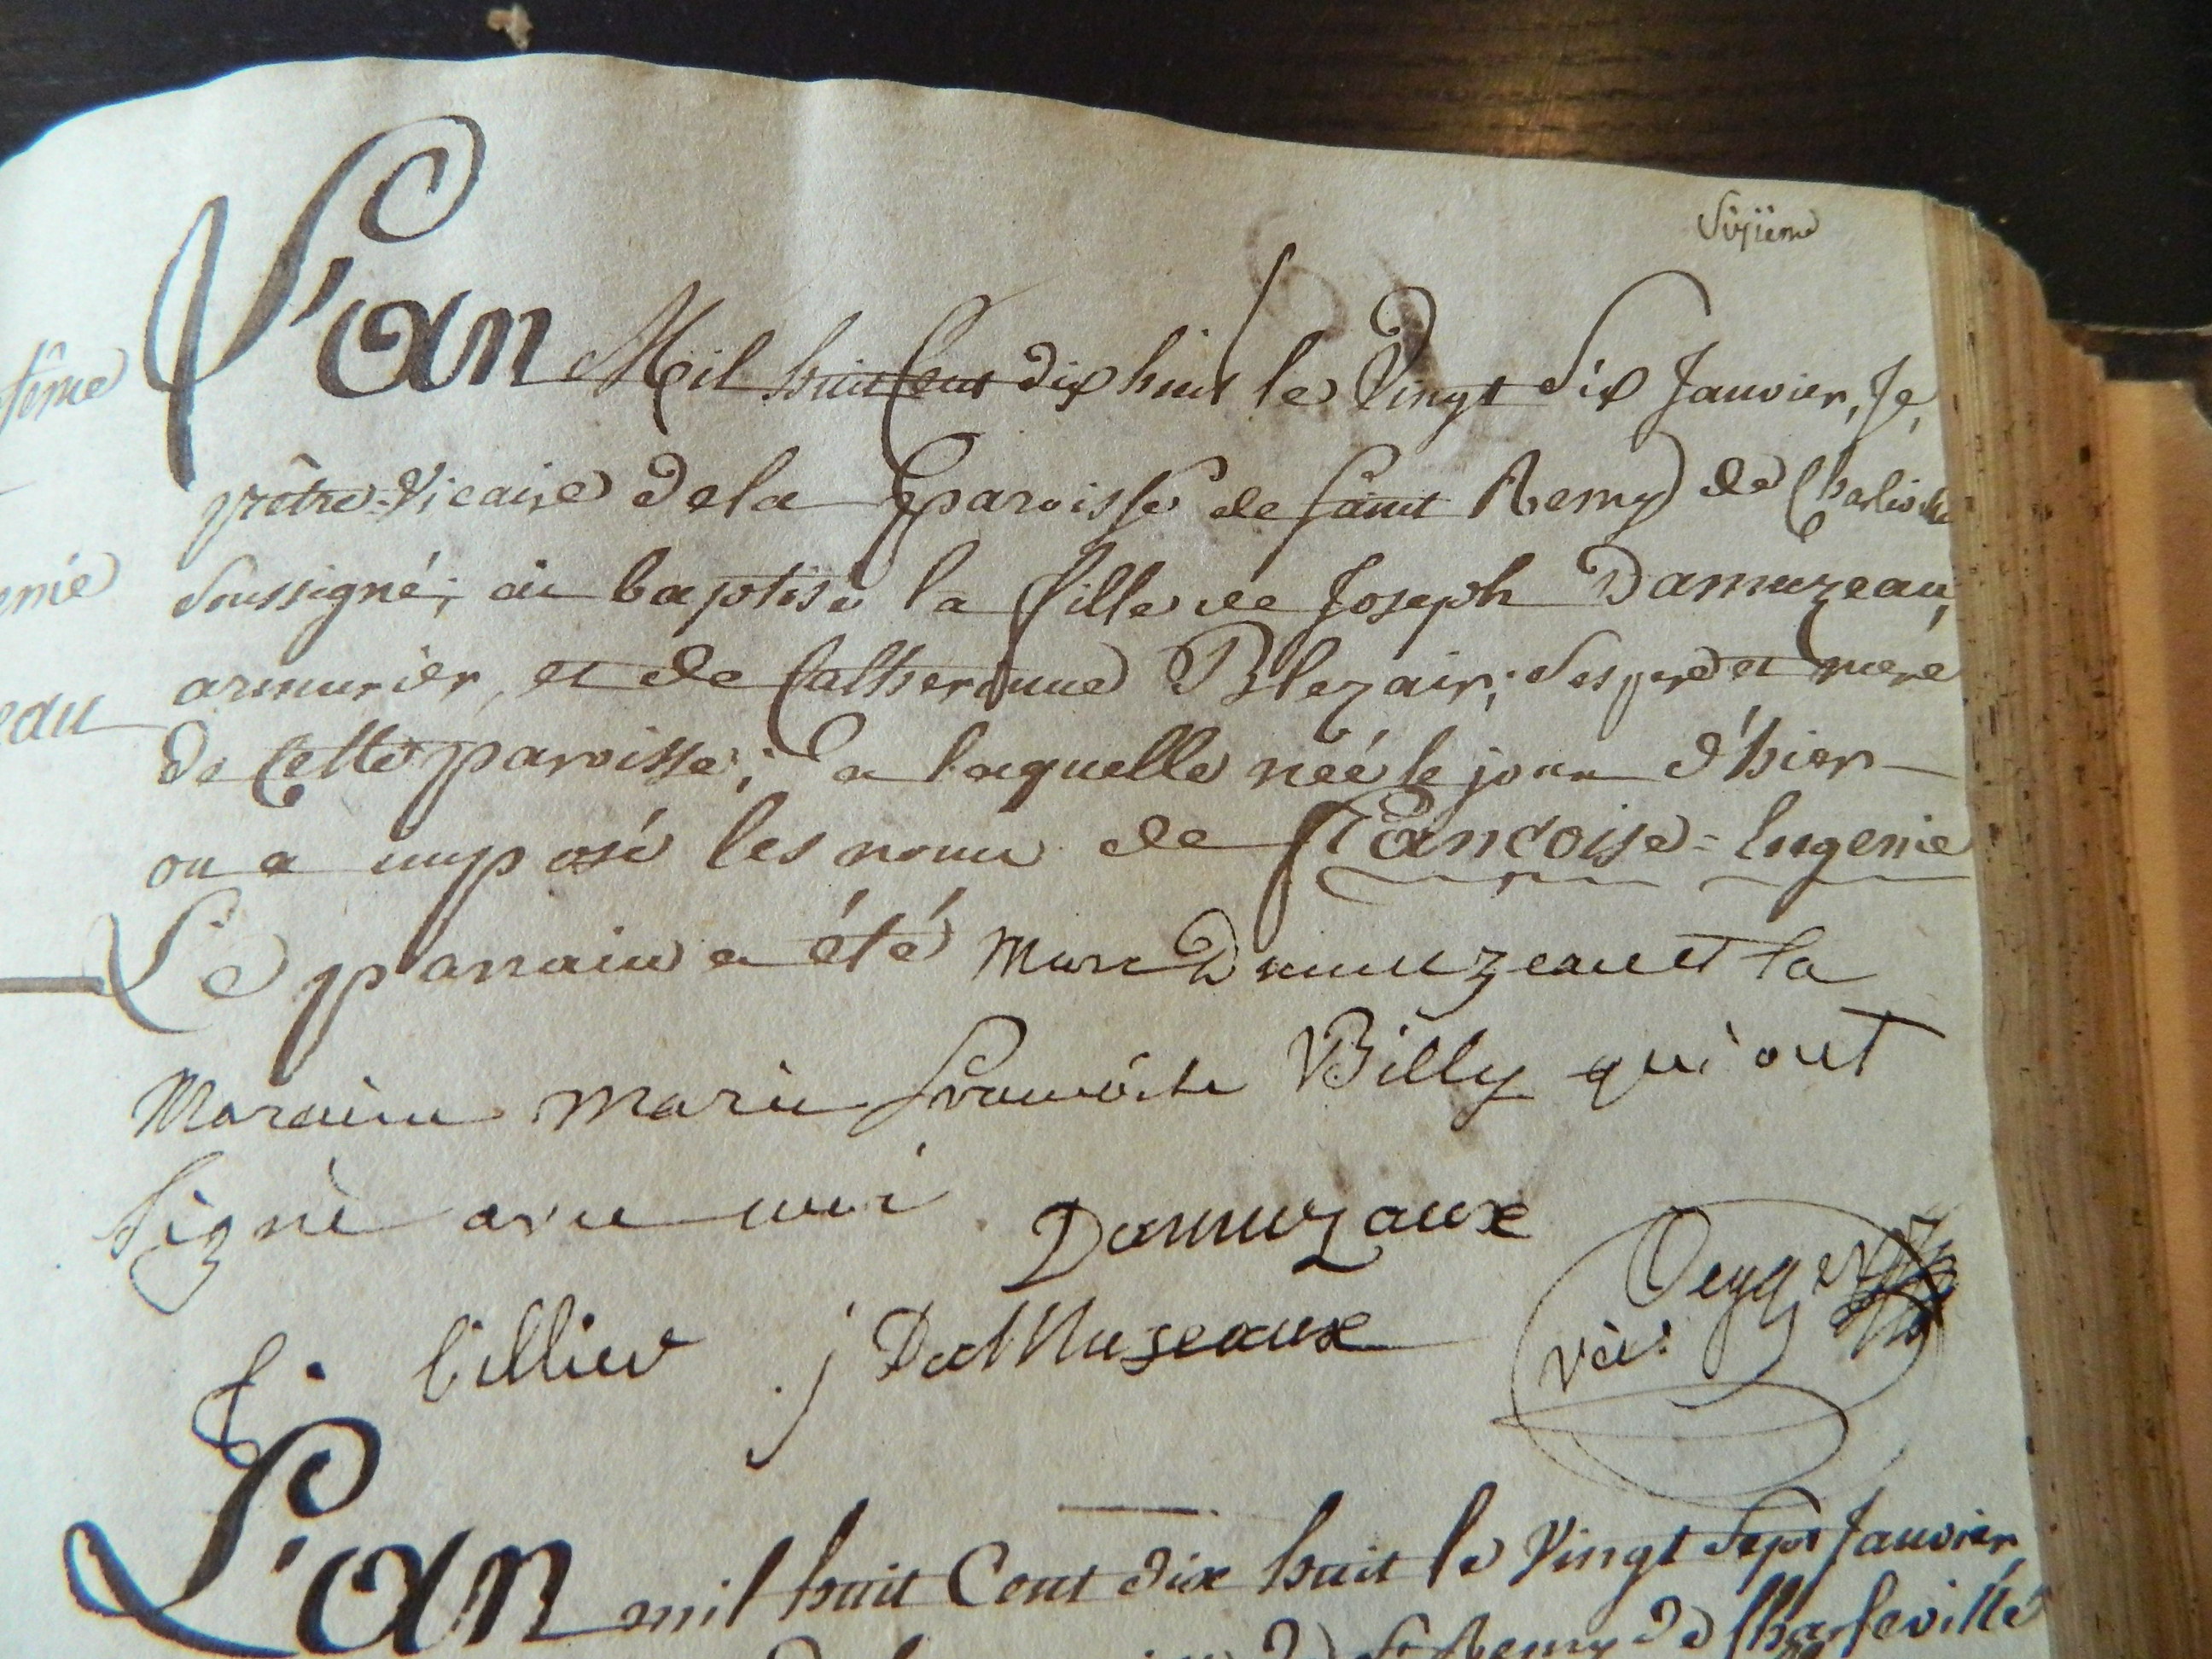 Sixième
L'an Mil huit Cent dix huit le Vingt Six Janvier, Je,
prêtre-Vicaire de la paroisse de saint Remy de
Soussigné; ai baptisé la fille de Joseph Damuzeau,
armurier, et de Catherinne Blezair; Ses pere et mere
de Cette paroisse; a laquelle néé le jour d'hier
on a imposé les noms de Francoise-Eugenie
Le parrain a été Marc Damuzeau et la
Maraine Marie francoise Billy qui ont
Signé avec moi Damuzaux
f. billier j Damuseaux vic:
L'an mil huit Cent dix huit le Vingt Sept Janvier,
de St Remy de Charleville
eme
enie
eau